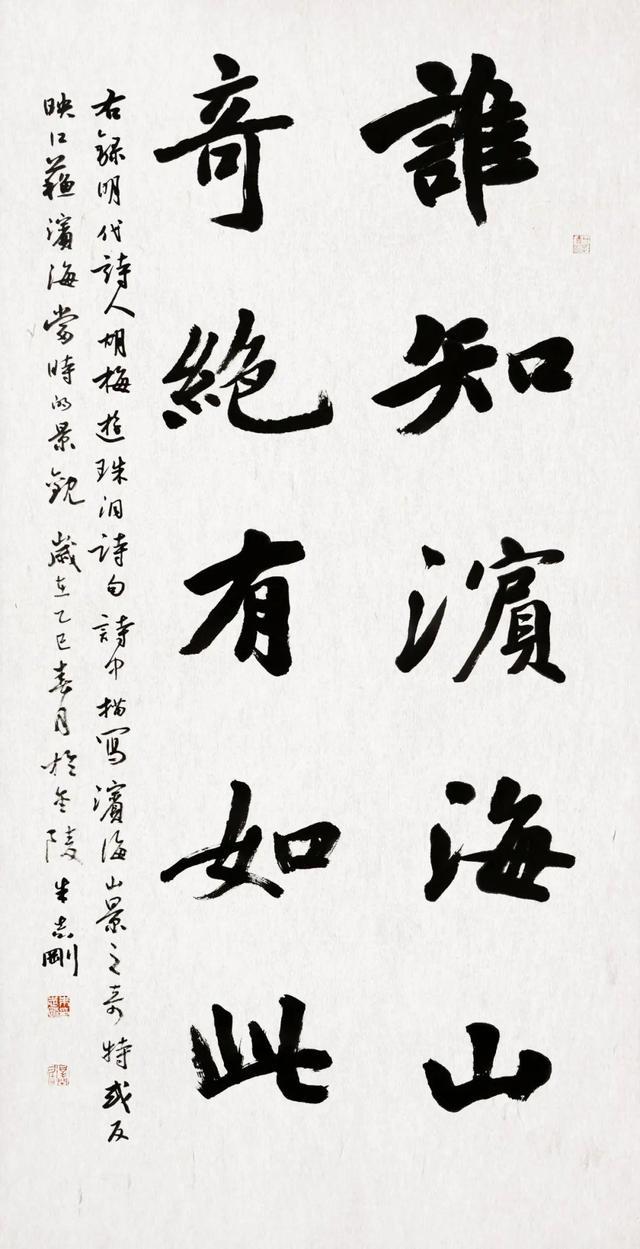 誰知濱海山
奇絶有如此
右録明代詩人胡梅遊珠洞詩句詩中描寫濱海山景之奇特或反
映江蘇濱海當時的景觀歲在乙巳春月於金陵朱志剛